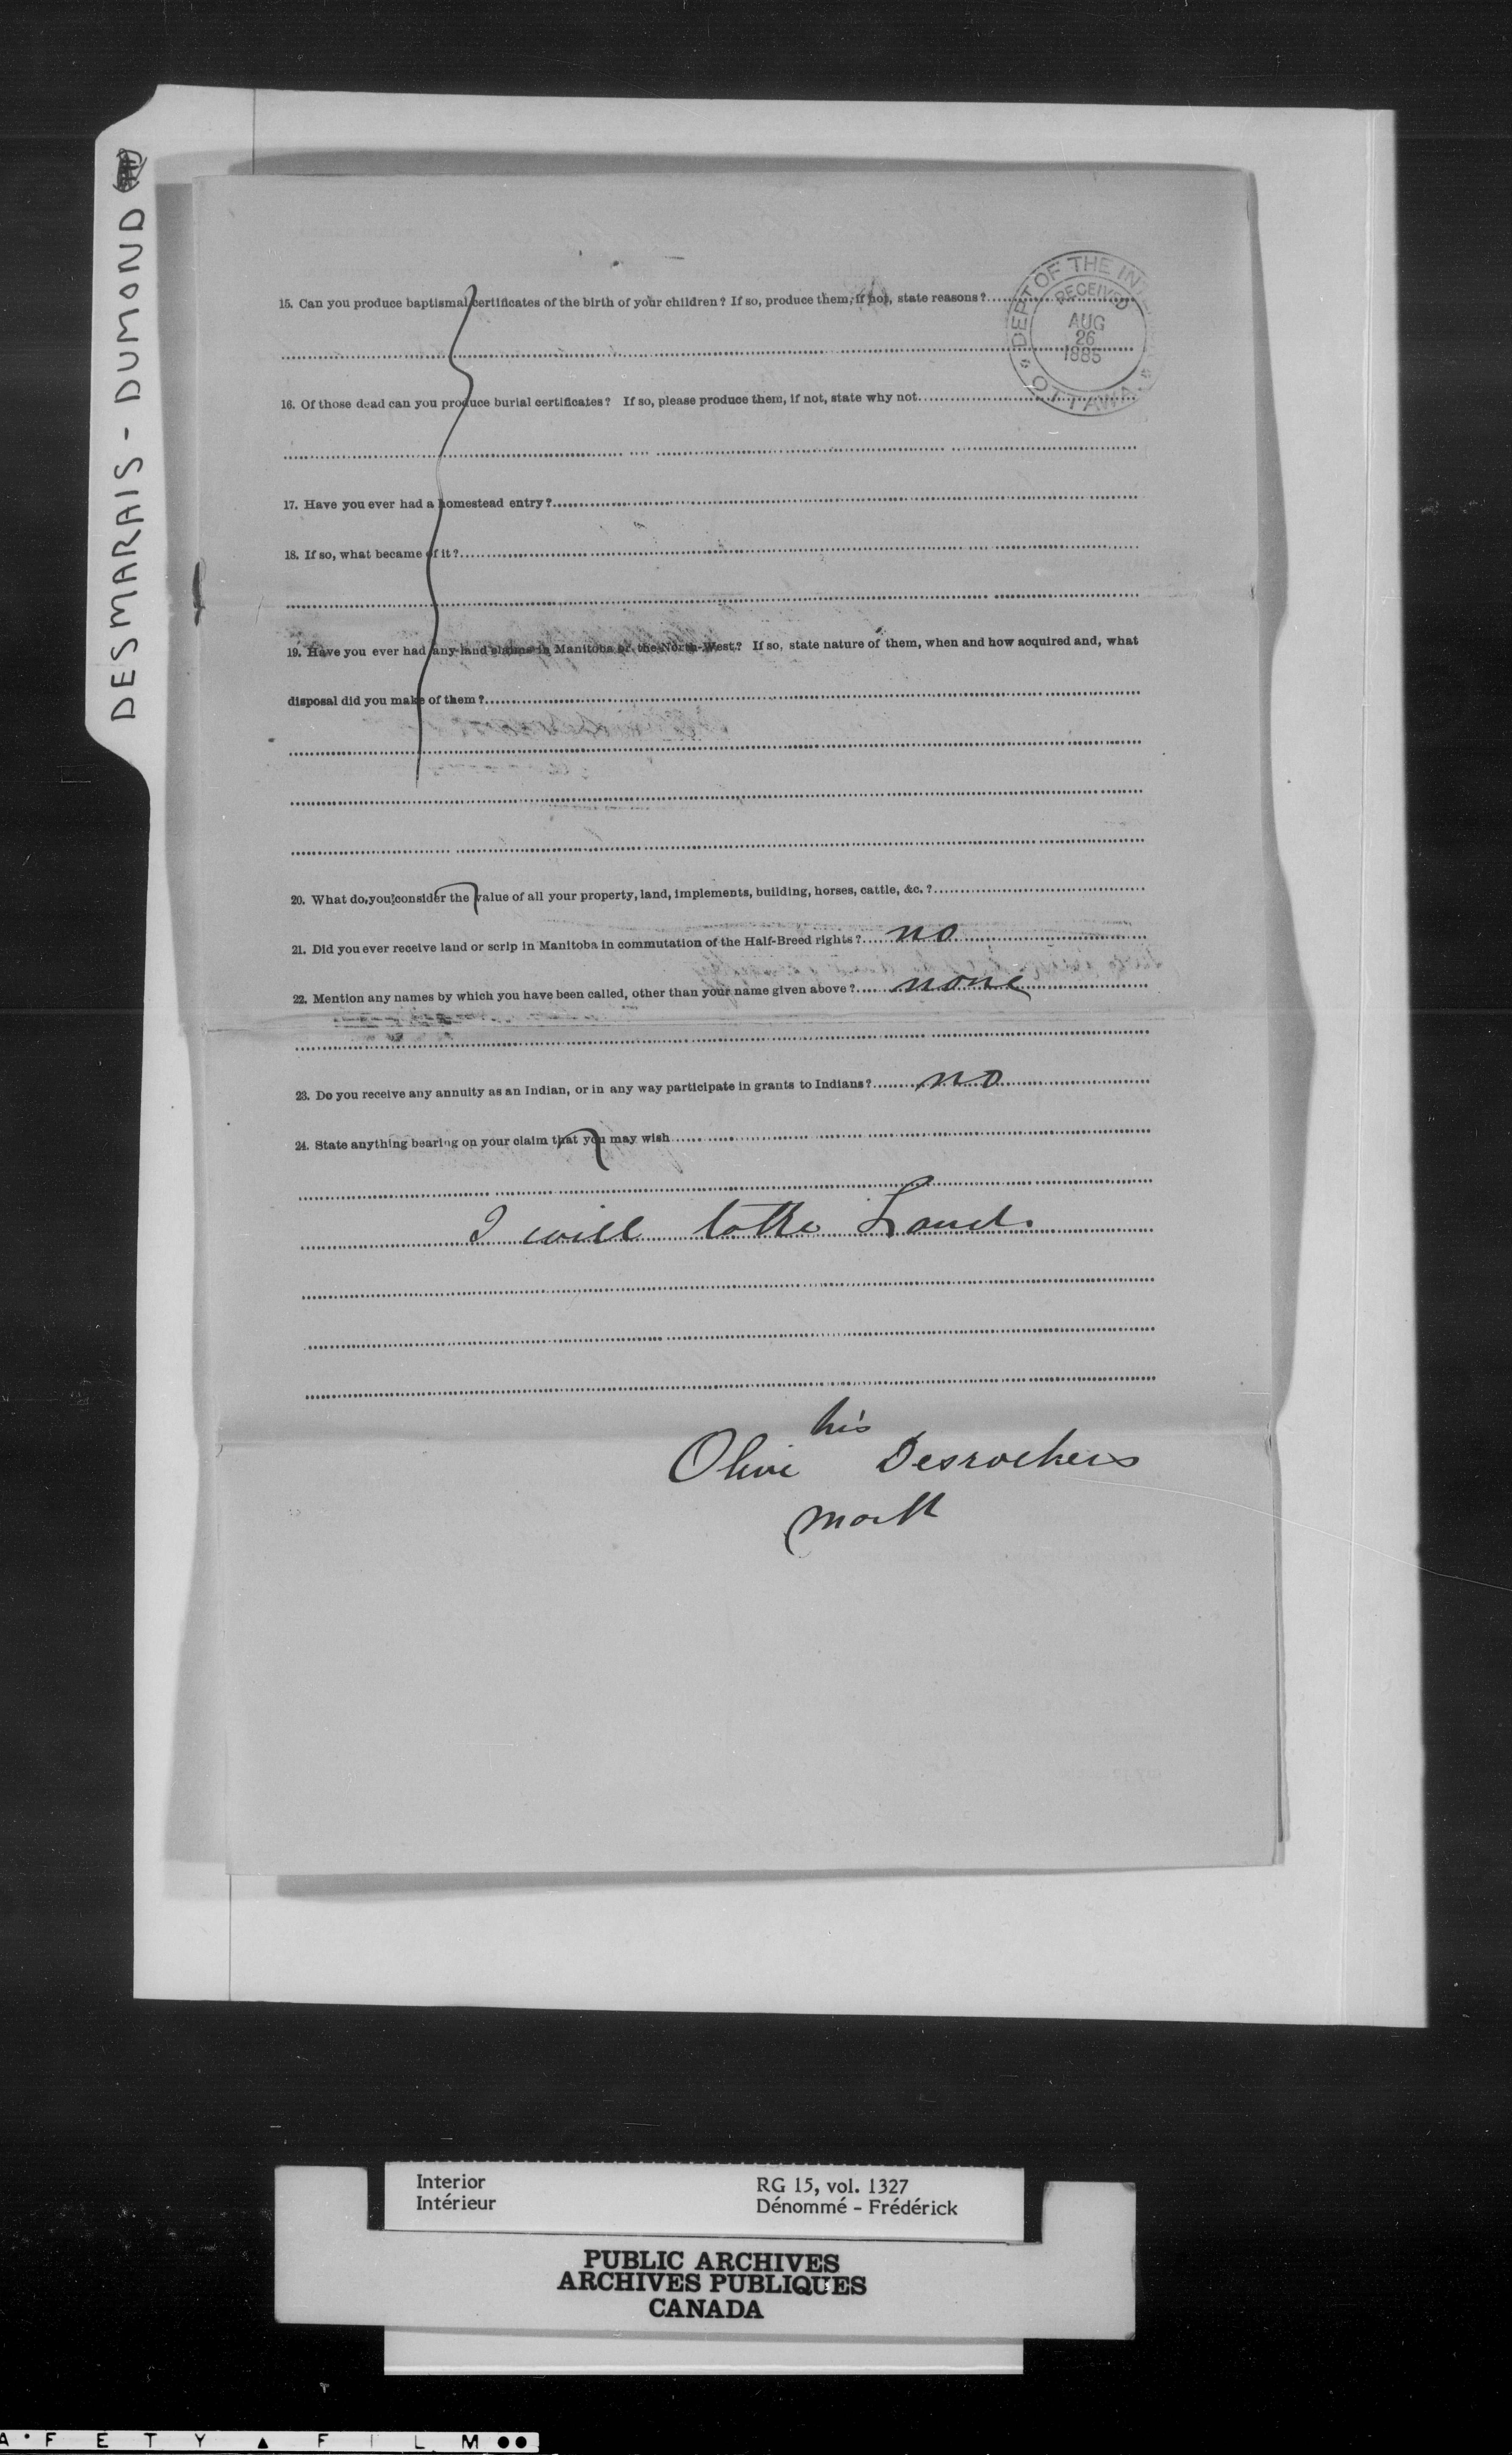 DESMARAIS - DUMOND
15. Can you produce baptismal certificates of the birth of your children? If so, produce them, if not, state reasons?
DEPT OF THE IN
RECEIVED
AUG
26
1885
OTTAWA
16. Of those dead can you produce burial certificates? If so, please produce them, if not, state why not
17. Have you ever had a homestead entry?
18. If so, what became of it?
19. Have you ever had any land claims in Manitoba or the North-West? If so, state nature of them, when and how acquired and, what
disposal did you make of them?
20. What do you consider the value of all your property, land, implements, building, horses, cattle, &c.?
21. Did you ever receive land or scrip in Manitoba in commutation of the Half-Breed rights? no
22. Mention any names by which you have been called, other than your name given above? none
23. Do you receive any annuity as an Indian, or in any way participate in grants to Indians? no
24. State anything bearing on your claim that you may wish
I will take Land.
his
Olive Desrochers
mark
Interior
Intérieur
RG 15, vol. 1327
Dénommé - Frédérick
PUBLIC ARCHIVES
ARCHIVES PUBLIQUES
CANADA
A • F E T Y ▲ F I L M ●●